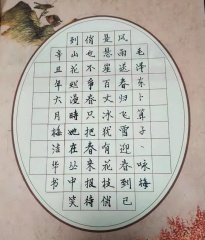 毛泽东卜算子、咏梅
风雨送春归飞雪迎春到已
是悬崖百丈冰犹有花枝俏
俏也不争春只把春来报待
到山花烂漫时她在丛中笑
辛丑年六月梅洁华书